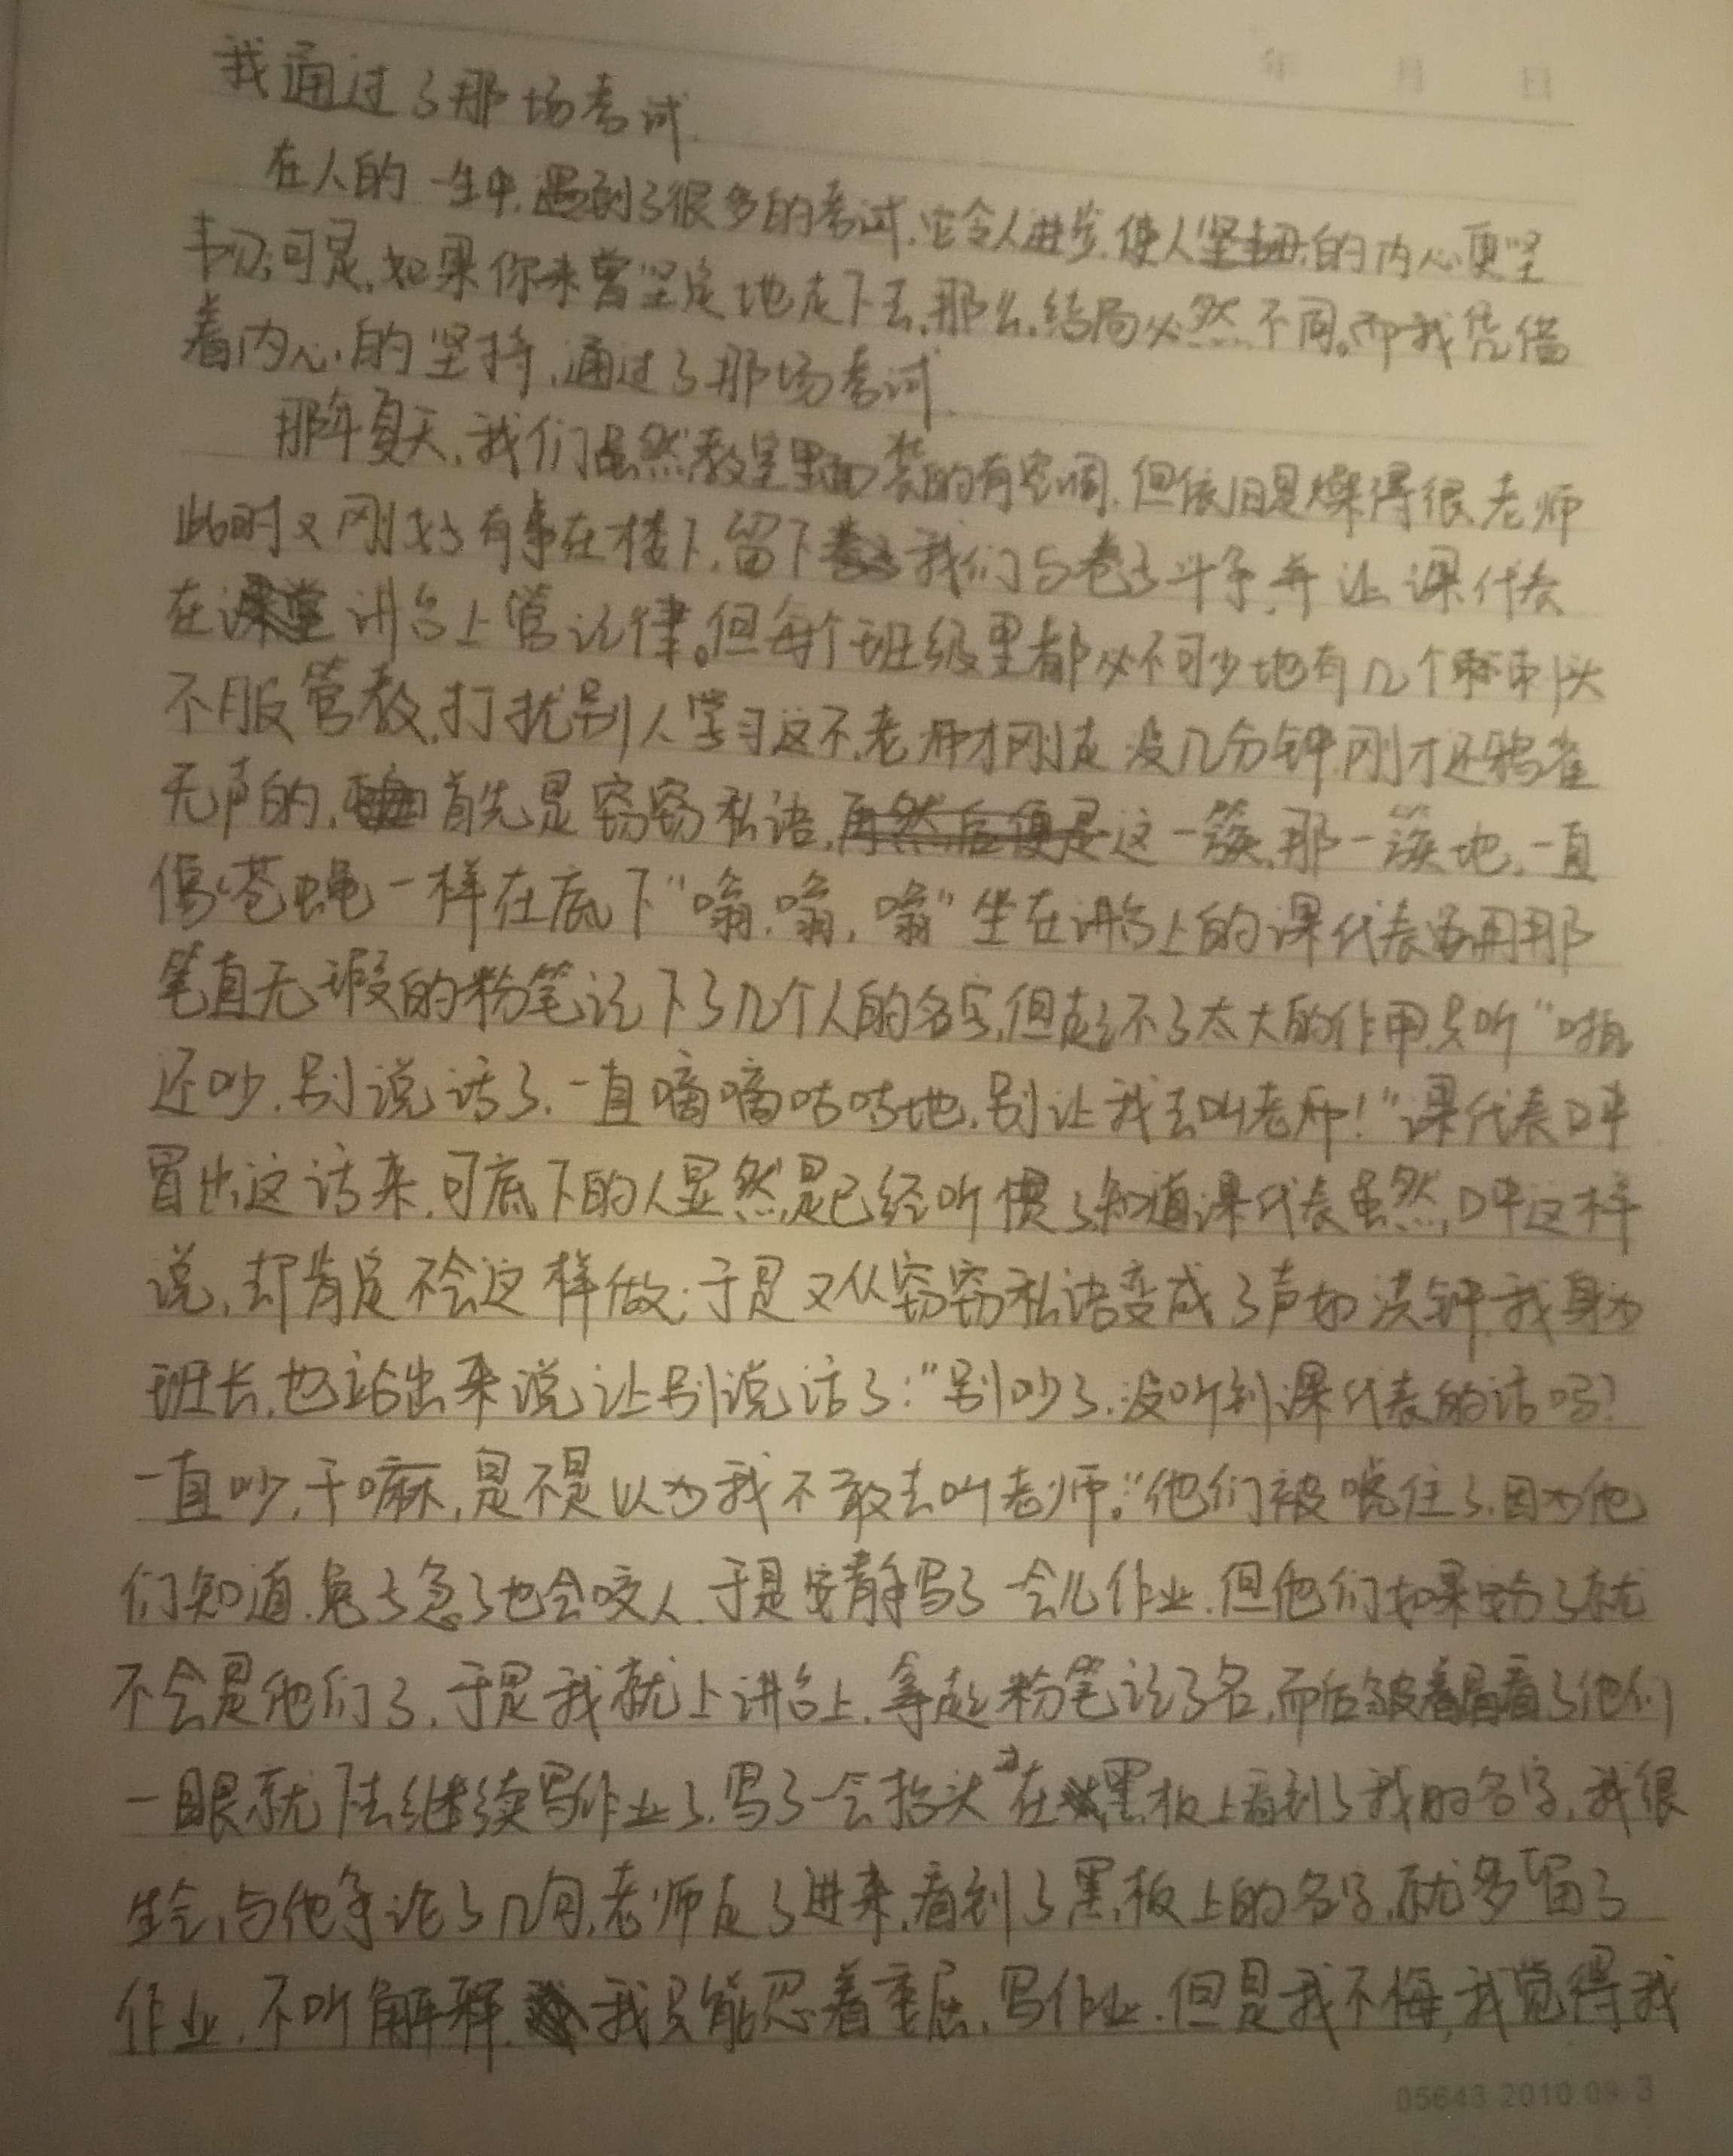 年 月 日
我通过了那场考试.
在人的一生中,遇到了很多的考试,它令人进步,使人的内心更坚
韧;可是,如果你未曾坚定地走下去,那么,结局必然不同。而我凭借
着内心的坚持,通过了那场考试.
那年夏天,我们虽然教室里面装的有空调,但依旧是燥得很,老师
此时又刚好有事在楼下,留下我们与卷子斗争,并让课代表
在讲台上管记律。但每个班级里都必不可少地有几个刺头
不服管教,打扰别人学习这不,老师才刚走没几分钟,刚才还鸦雀
无声的,首先是窃窃私语,这一簇,那一簇地,一直
像苍蝇一样在底下"嗡,嗡,嗡"坐在讲台上的课代表用那
笔直无瑕的粉笔记下了几个人的名字,但起不了太大的作用,只听"啪
还吵,别说话了,一直嘀嘀咕咕地,别让我去叫老师!"课代表口中
冒出这话来,可底下的人显然是已经听惯了,知道课代表虽然,口中这样
说,却肯定不会这样做;于是又从窃窃私语变成了声如洪钟,我身为
班长,也站出来说让别说话了:"别吵了,没听到课代表的话吗?
一直吵,干嘛,是不是以为我不敢去叫老师。"他们被唬住了,因为他
们知道,兔子急了也会咬人,于是安静写了一会儿作业,但他们如果安分了就
不会是他们了,于是我就上讲台上,拿起粉笔记了名,而后皱着眉看了他们
一眼就下去继续写作业了,写了一会抬头才在黑板上看到了我的名字,我很
生气,与他争论了几句,老师走了进来,看到了黑板上的名字,就多留了
作业,不听解释,我只能忍着委屈,写作业,但是我不悔,我觉得我
05643 2010 09 3